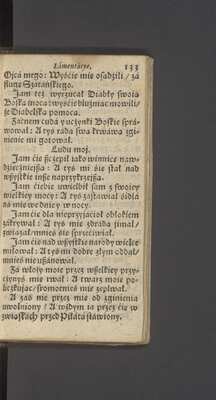 Lámentárze. 133
Ojcá mego: Wyście mię osądzili/ zá
sługę Szátáńskiego.
Jam też wyrzucał Diabły swoią
Boską mocą: wyście bluźniąc mowili/
że Diabelską pomocą.
Fáctem cudá y uczynki Boskie spra-
wował: A tyś rádá swą krwáwą zgi-
nienie mi gotowáł.
Ludu moj.
Jam cię sczepił iáko winnicę náw-
dzięcznieyszą: A tyś mi się stał nád
wszystkie insze naprzykrzeysza.
Jam ciebie uwielbił sam z swoiey
wielkiey mocy: A tyś zástáwiał sidłá
ná mię we dnie y w nocy.
Jam cię dla nieprzyiacioł obłokiem
zákrywał: A tyś mię zdradą imał/
związał/ mnieś się sprzeciwiał.
Jam cię nád wszystkie narody wielce
miłował: A tyś mi dobre złym oddał/
mnieś nie uszánował.
Zá włosy moie przez wszelkiey przy-
czynyś mię rwał: A twarz moię po-
liczkuiąc/ sromotnieś mię zeplwał.
A záś nie przez mię od zginienia
uwolniony/ A widzym ia przez cię w
związkách przed Piłatá stáwiony.